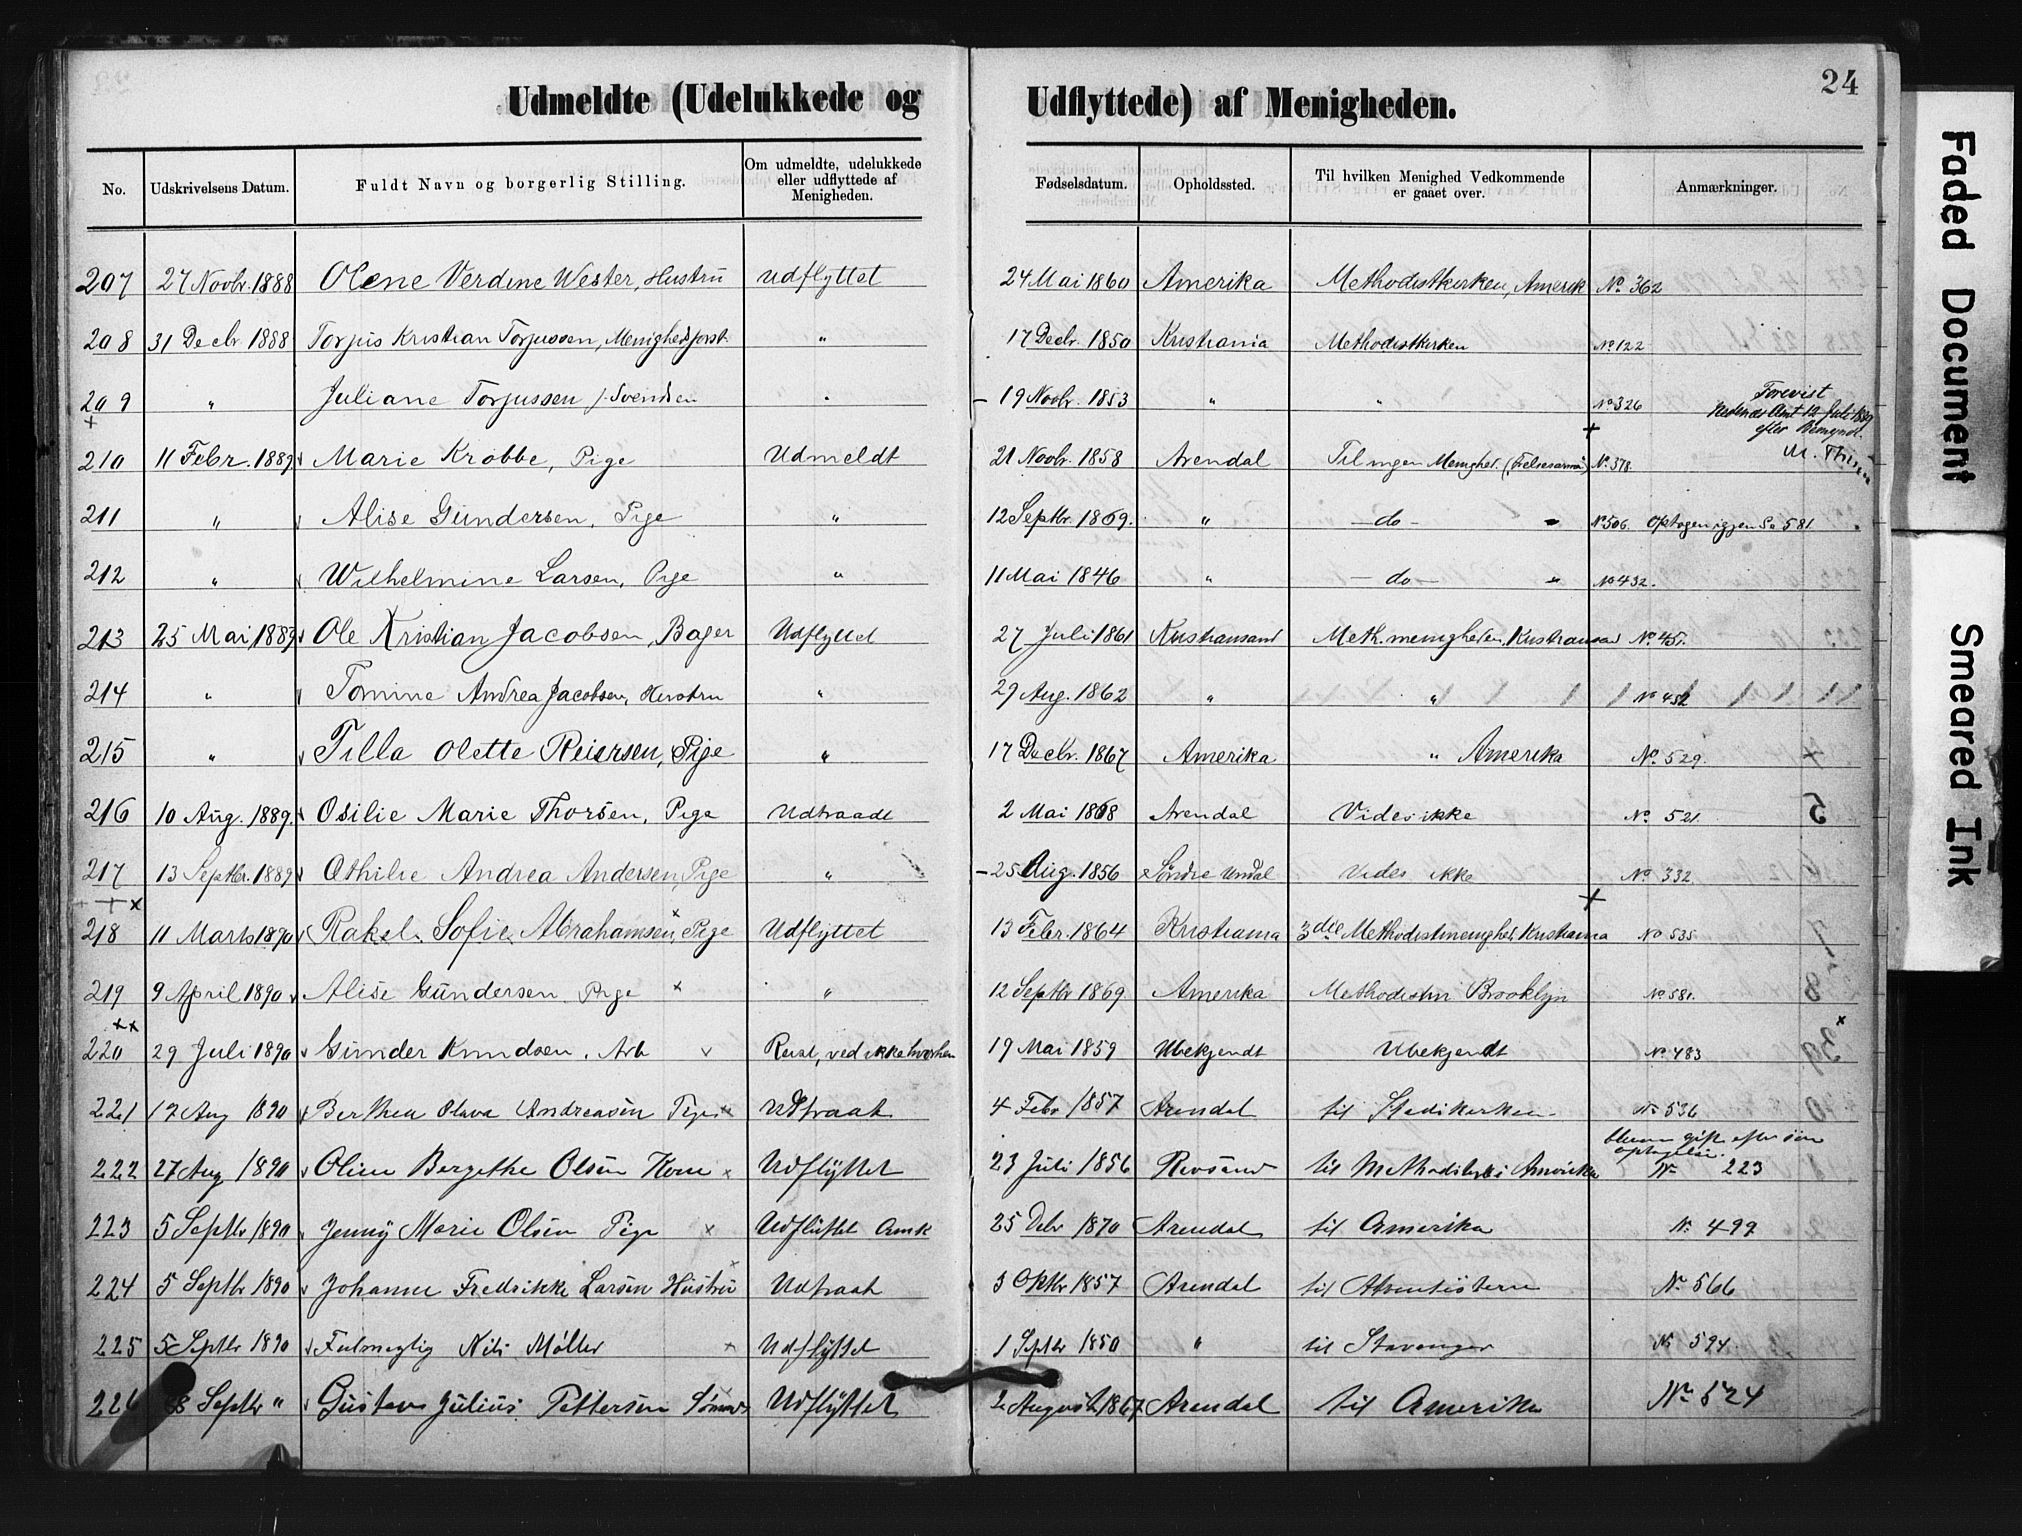 24
Udmeldte (Udelukkede og Udflyttede) af Menigheden.
No. Udskrivelsens Datum. Fuldt Navn og borgerlig Stilling. Om udmeldte, udelukkede eller udflyttede af Menigheden. Fødselsdatum. Opholdssted. Til hvilken Menighed Vedkommende er gaaet over. Anmærkninger.
207 27 Novbr. 1888 Olene Verdine Wester, Hustru Udflyttet 24 Mai 1860 Amerika Methodistkirken, Amerik No. 362
208 31 Decbr. 1888 Torjus Kristian Torjussen, Menighedsforst. " 17 Decbr. 1850 Kristiania Methodistkirken No. 122
209 " Juliane Torjussen f. Svendsen " 19 Novbr. 1853 " " No. 326 Forevist
Nedenæs Amt 12 Juli 1889
efter Bemynd.
210 11 Febr. 1889 Marie Krobbe, Pige Udmeldt 21 Novbr. 1858 Arendal Til ingen Menighed. (Frelsesarme) No. 378
211 " Alise Gundersen, Pige " 12 Septbr. 1869. " do No 506. Optagen igjen 581.
212 " Wilhelmine Larsen, Pige " 11 Mai 1846 " do " No 432.
213 25 Mai 1889 Ole Kristian Jacobsen, Bager Udflyttet 27 Juli 1861 Kristiansand Meth. menigheden, Kristiansand No. 451.
214 " Tomine Andrea Jacobsen, Hustru " 29 Aug. 1862 " " No 452
215 " Tilla Olette Reiersen, Pige " 17 Decbr. 1867 Amerika " Amerika No. 529.
216 10 Aug. 1889. Osilie Marie Thorsen, Pige Udtraadt 2 Mai 1868 Arendal Vides ikke No. 521.
217 13 Septbr. 1889 Othilie Andrea Andersen, Pige " 25 Aug. 1856 Søndre Undal Vides ikke No 332
218 11 Marts 1890 Rakel Sofie Abrahamsen, Pige Udflyttet 13 Febr. 1864 Kristiania 3die Methodistmenighed, Kristiania No 535
219 9 April 1890 Alise Gundersen Pige " 12 Septbr 1869 Amerika Methodistm Brooklyn No 581.
220 29 Juli 1890 Gunder Knudsen, Arb Reist, ved ikke hvorhen 19 Mai 1859 Ubekjendt Ubekjendt No. 483
221 17 Aug 1890 Berthea Olava Andreasen Pige Udtraat 4 Febr 1857 Arendal til Stadskirken No 536
222 27 Aug 1890 Oline Bergethe Olsen Kone Udflyttet 23 Juli 1856 Revsand til Methodistk i Amerika blevn gift efter sin
optagelse.
No 223
223 5 Septbr 1890 Jenny Marie Olsen Pige Udflyttet Amk 25 Debr 1870 Arendal til Amerika No. 499
224 5 Septbr 1890 Johanne Fredrikke Larsen Hustru Udtraat 3 Oktbr 1857 Arendal til Adventisterne No. 566
225 5 Septbr 1890 Fulmegtig Nils Møller Udflyttet 1 Septbr 1850 " til Stavanger No 594.
226 8 Septbr " Gustav Julius Pettersen Sømand Udflyttet 2 August 1867 Arendal til Amerika No. 524
Faded Document
Smeared Ink